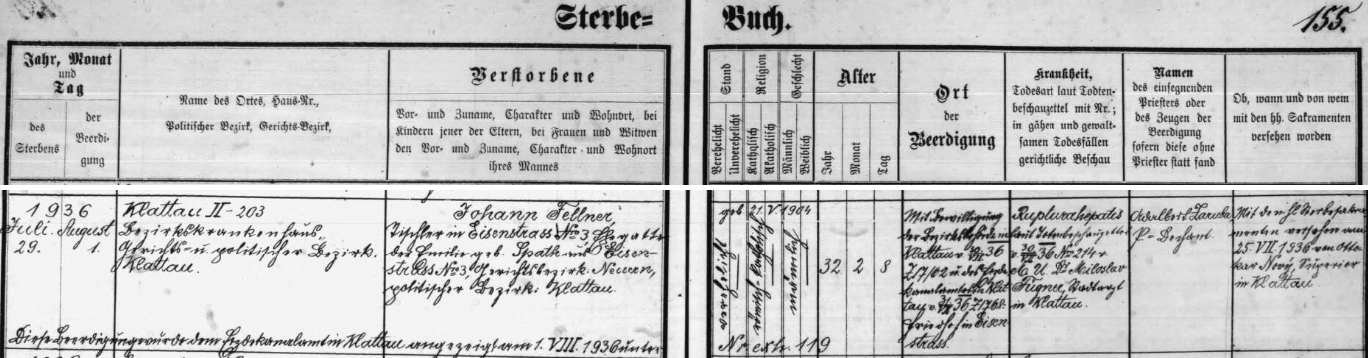 Sterbe= Buch. 155.
Jahr, Monat
und
Tag
des
Sterbens
der
Beerdi-
gung
Name des Ortes, Haus-Nr.,
Politischer Bezirk, Gerichts-Bezirk,
Verstorbene
Vor- und Zuname, Charakter und Wohnort, bei
Kindern jener der Eltern, bei Frauen und Witwen
den Vor- und Zuname, Charakter und Wohnort
ihres Mannes
Stand
Verehelicht
Unverehelicht
Religion
Katholisch
Akatholisch
Geschlecht
Männlich
Weiblich
Alter
Jahr
Monat
Tag
Ort
der
Beerdigung
Krankheit,
Todesart laut Todten-
beschauzettel mit Nr.;
in gähen und gewalt-
samen Todesfällen
gerichtliche Beschau
Namen
des einsegnenden
Priesters oder
des Zeugen der
Beerdigung
sofern diese ohne
Priester statt fand
Ob, wann und von wem
mit den hh. Sakramenten
versehen worden
1936
Juli. August
29. 1.
Klattau II - 203
Bezirkskrankenhaus,
Gerichts- u. politischer Bezirk.
Klattau.
Johann Fellner
Tischler in Eisenstrass No 3 Ehegatte
der Emilie geb. Spatk aus Eisen-
strass No 3, Gerichtsbezirk: Neuern,
politischer Bezirk: Klattau.
geb. 21. V. 1904
verehelicht
römisch-katholisch
männlich
32 2 8
Mit Bewilligung
der Bezirksbehörde in
Klattau v. 30/VII 36
Z. 7/62 u. des Erzde-
kanalamtes in Klat-
tau v. 36 Z. 1768.
Friedhof in Eisen-
strass.
Ruptura hepatis
mit Totenbeschauzettel
v. 30/VII 36 No 214 v.
M. U. Dr. Miloslav
Fügner, Stadtarzt
in Klattau.
Adalbert
P. Dechant.
Mit den hl. Sterbesakra-
menten versehen am
25. VII. 1936 von Otto-
kar Nový, Superior
in Klattau.
Diese Beerdigung wurde dem Erzdekanalamt in Klattau angezeigt am 1. VIII. 1936 unter
No exh. 119